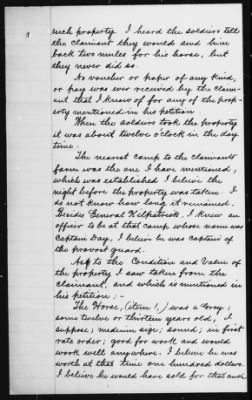 such property. I heard the soldiers tell
the claimant they would send him
back two mules for his horse, but
they never did so.
No voucher or paper of any kind,
or pay was ever received by the claim-
ant that I know of for any of the prop-
erty mentioned in his petition
When the soldiers took the property
it was about twelve o'clock in the day
time.
The nearest camp to the claimants
farm was the one I have mentioned,
which was established I believe the
night before the property was taken. I
do not know how long it remained.
Beside General Kilpatrick, I knew an
officer to be at that camp whose name was
Captain Day, I believe he was captain of
the provost guard.
As to the Condition and Value of
the property I saw taken from the
claimant, and which is mentioned in
his petition; -
The Horse, (item 1,) was a
some twelve or thirteen years old, I
suppose; medium size; sound; in first
rate order; good for work and would
work well anywhere. I believe he was
worth at that time one hundred dollars.
I believe he would have sold for that and